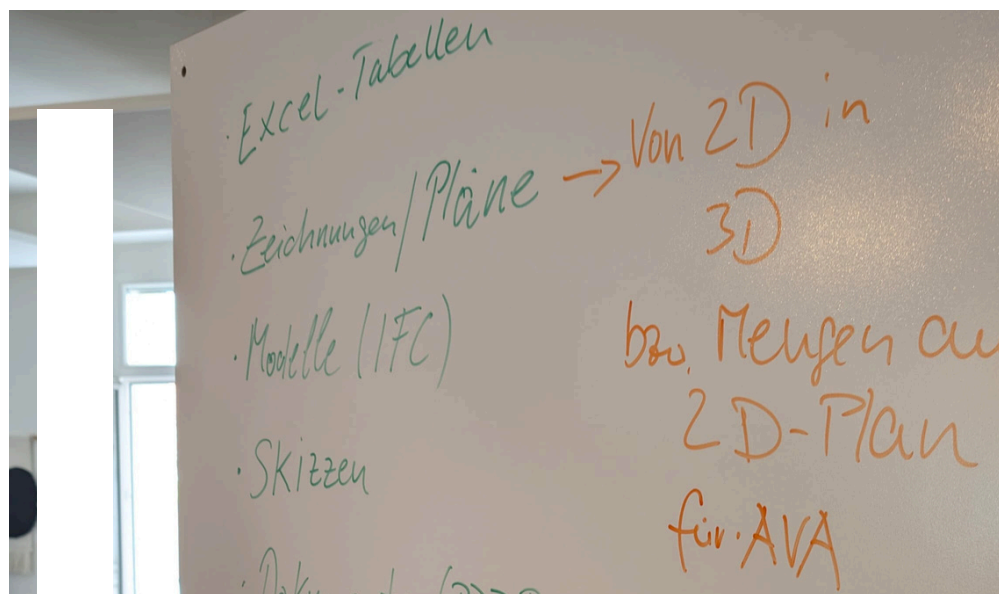 · Excel-Tabellen
· Zeichnungen/Pläne → Von 2D in
3D
· Modelle (IFC)
bzw. Mengen
2D-Plan
· Skizzen
für AVA